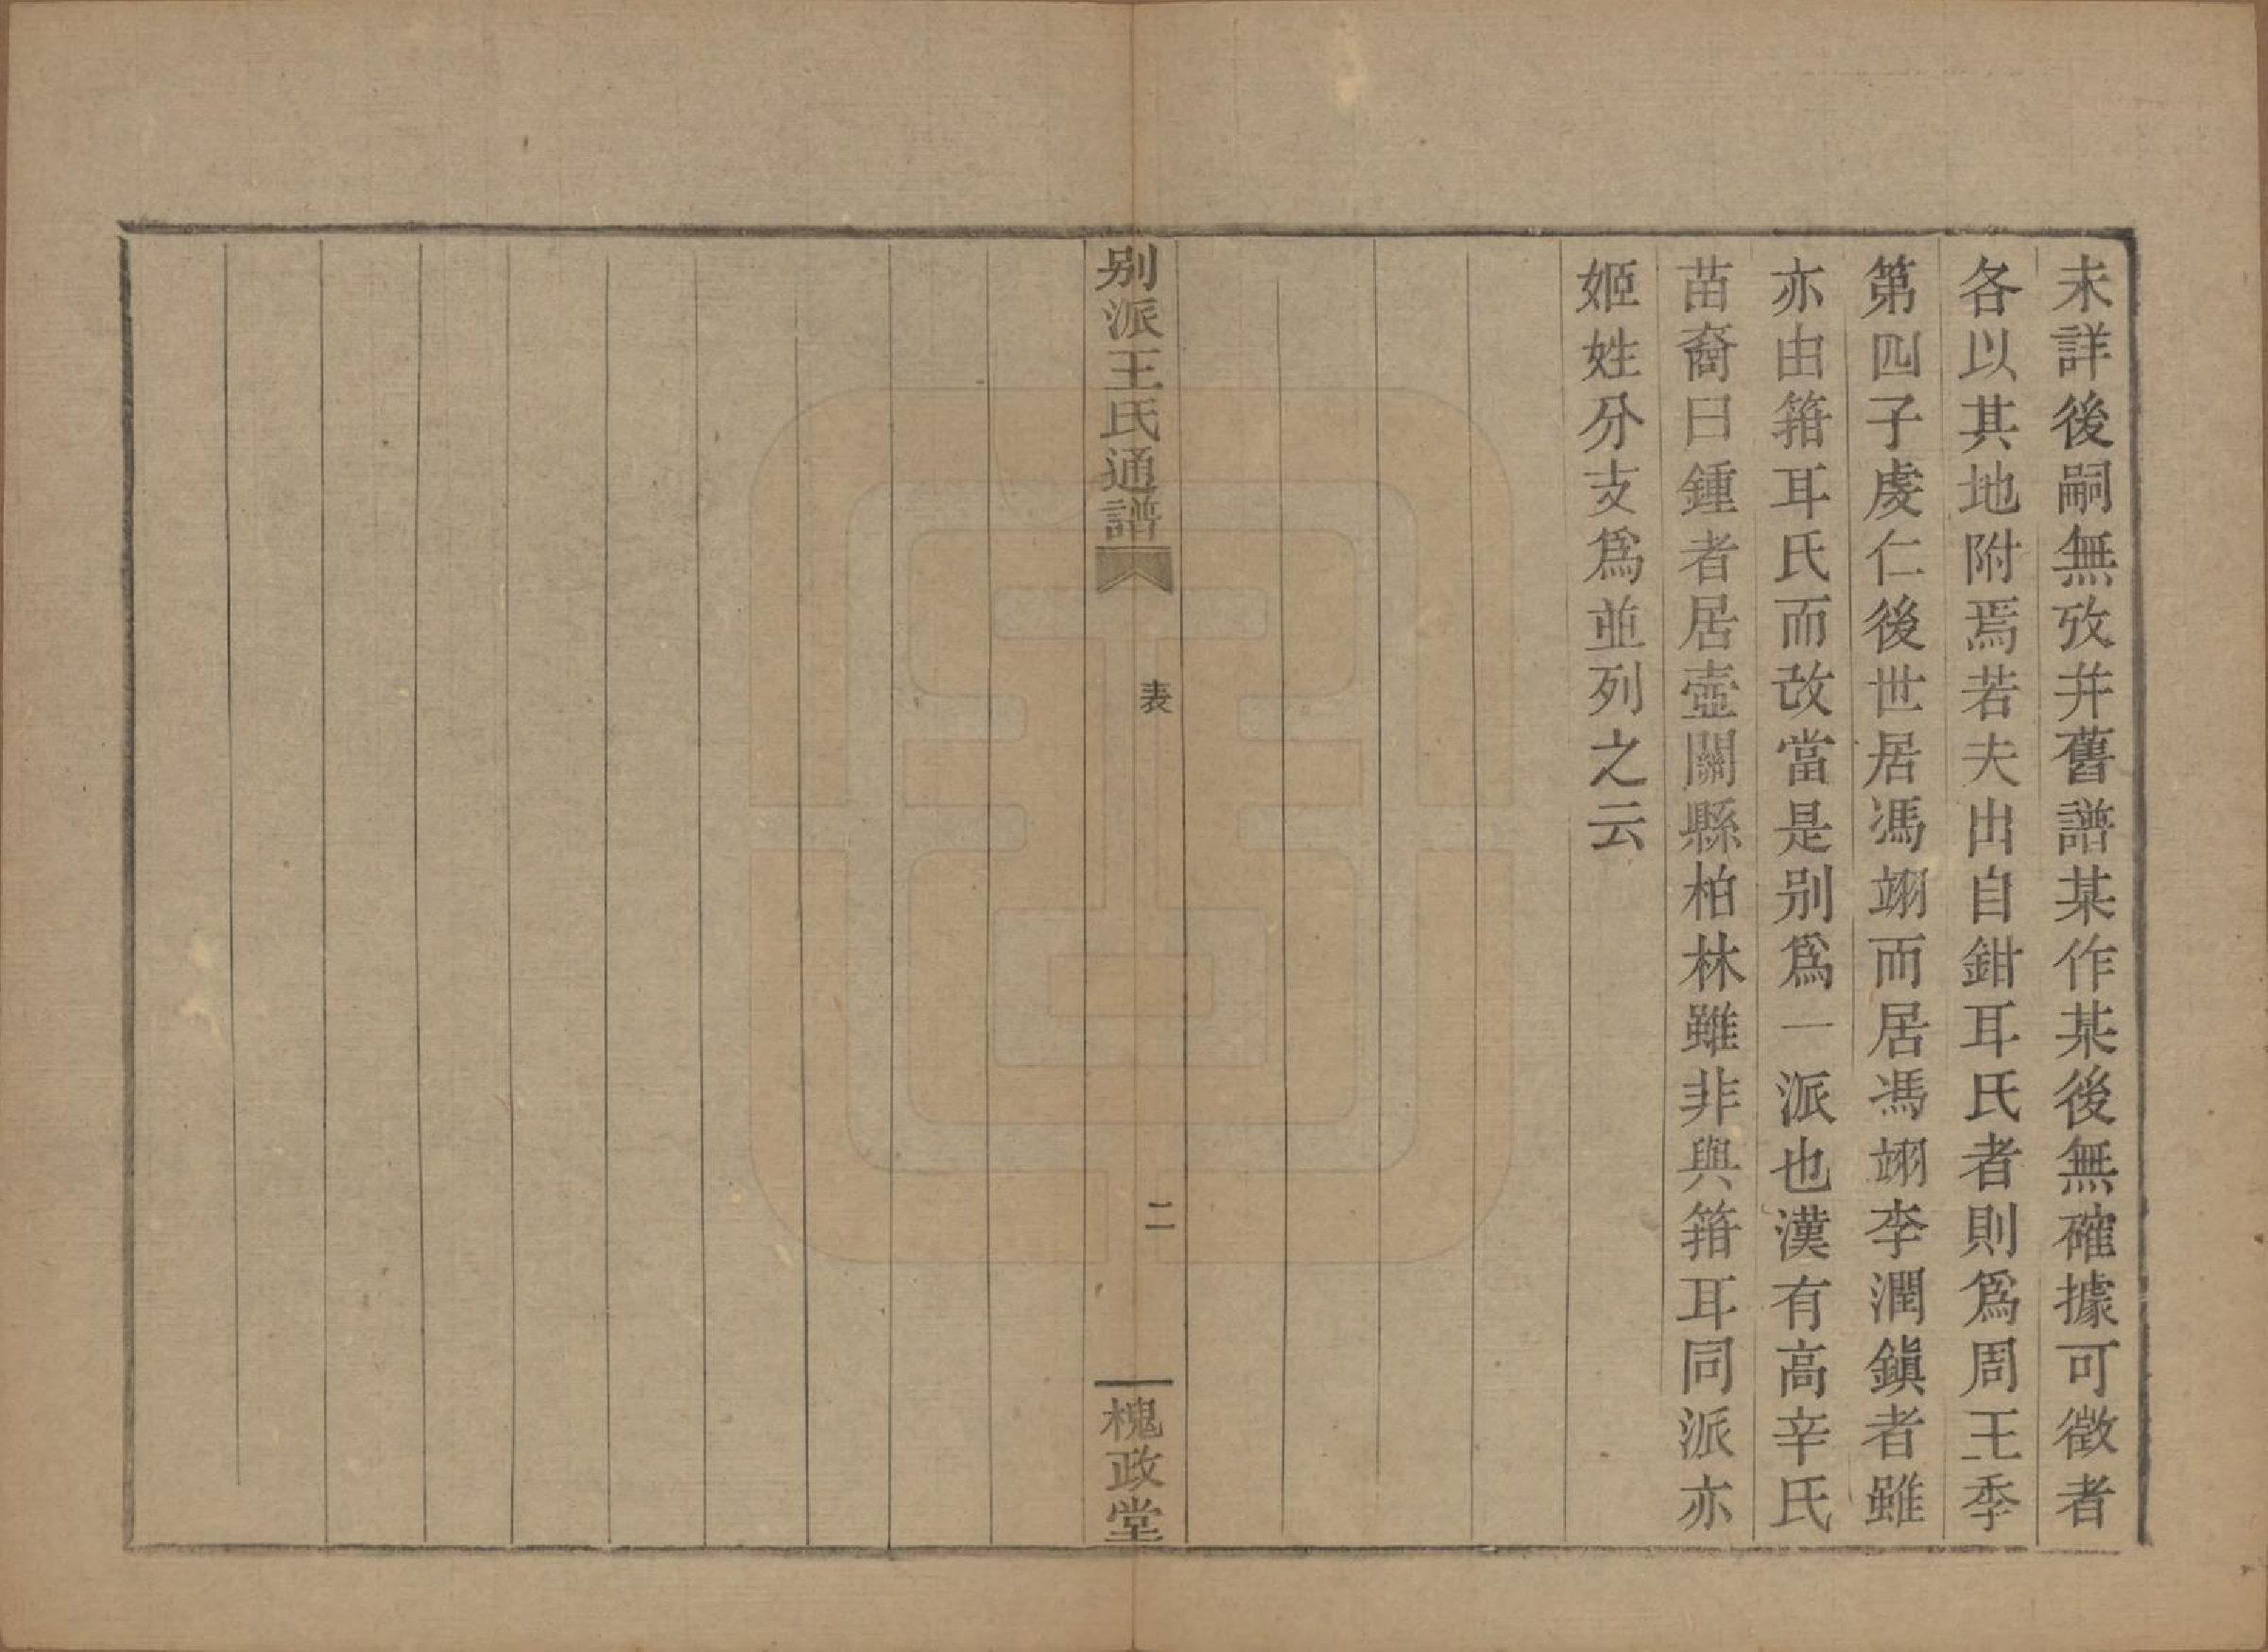 未詳後嗣無攷并舊譜某作某後無確據可徵者
各以其地附焉若夫出自鉗耳氏者則爲周王季
第四子虔仁後世居馮翊而居馮翊李潤鎭者雖
亦由箝耳氏而改當是别爲一派也漢有高辛氏
苗裔曰鍾者居壺關縣柏林雖非與箝耳同派亦
姬姓分支爲並列之云
别派王氏通譜
表
二
槐政堂